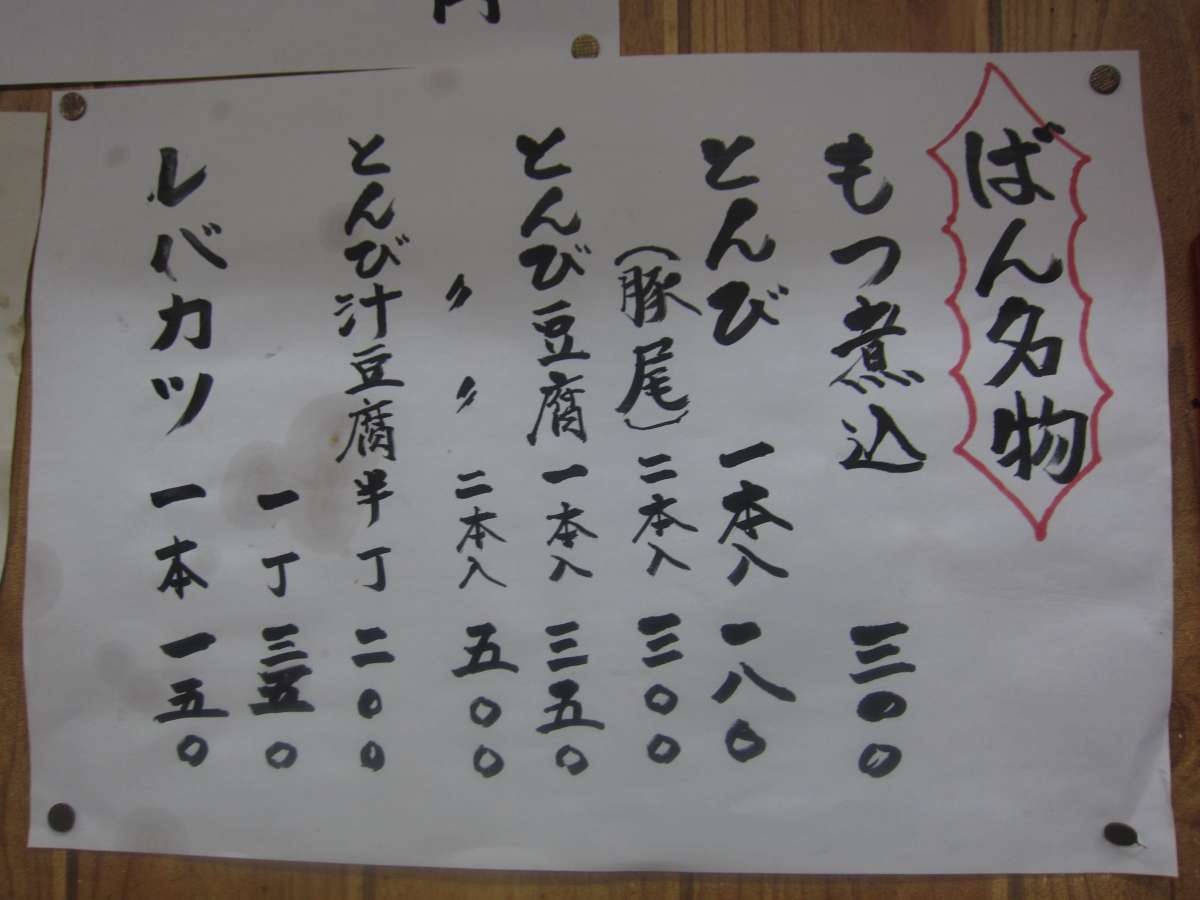 円
ばん名物
もつ煮込 三〇〇
とんび 一本入 一八〇
（豚尾） 二本入 三〇〇
とんび豆腐 一本入 三五〇
〃 〃 二本入 五〇〇
とんび汁豆腐 半丁 二〇〇
一丁 三五〇
レバカツ 一本 一五〇